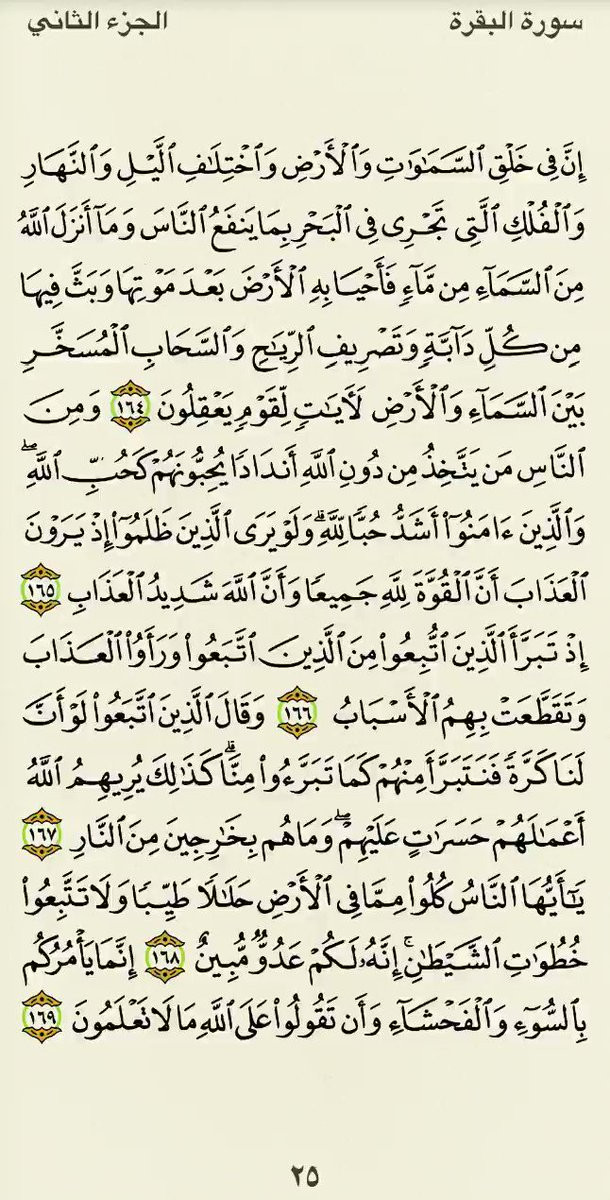 سورة البقرة
الجزء الثاني
إِنَّ فِي خَلْقِ ٱلسَّمَٰوَٰتِ وَٱلْأَرْضِ وَٱخْتِلَٰفِ ٱلَّيْلِ وَٱلنَّهَارِ
وَٱلْفُلْكِ ٱلَّتِي تَجْرِي فِي ٱلْبَحْرِ بِمَا يَنفَعُ ٱلنَّاسَ وَمَآ أَنزَلَ ٱللَّهُ
مِنَ ٱلسَّمَآءِ مِن مَّآءٍ فَأَحْيَا بِهِ ٱلْأَرْضَ بَعْدَ مَوْتِهَا وَبَثَّ فِيهَا
مِن كُلِّ دَآبَّةٍ وَتَصْرِيفِ ٱلرِّيَٰحِ وَٱلسَّحَابِ ٱلْمُسَخَّرِ
بَيْنَ ٱلسَّمَآءِ وَٱلْأَرْضِ لَأٓيَٰتٍ لِّقَوْمٍ يَعْقِلُونَ ١٦٤ وَمِنَ
ٱلنَّاسِ مَن يَتَّخِذُ مِن دُونِ ٱللَّهِ أَندَادًا يُحِبُّونَهُمْ كَحُبِّ ٱللَّهِۖ
وَٱلَّذِينَ ءَامَنُوٓا۟ أَشَدُّ حُبًّا لِّلَّهِۗ وَلَوْ يَرَى ٱلَّذِينَ ظَلَمُوٓا۟ إِذْ يَرَوْنَ
ٱلْعَذَابَ أَنَّ ٱلْقُوَّةَ لِلَّهِ جَمِيعًا وَأَنَّ ٱللَّهَ شَدِيدُ ٱلْعَذَابِ ١٦٥
إِذْ تَبَرَّأَ ٱلَّذِينَ ٱتُّبِعُوا۟ مِنَ ٱلَّذِينَ ٱتَّبَعُوا۟ وَرَأَوُا۟ ٱلْعَذَابَ
وَتَقَطَّعَتْ بِهِمُ ٱلْأَسْبَابُ ١٦٦ وَقَالَ ٱلَّذِينَ ٱتَّبَعُوا۟ لَوْ أَنَّ
لَنَا كَرَّةً فَنَتَبَرَّأَ مِنْهُمْ كَمَا تَبَرَّءُوا۟ مِنَّاۗ كَذَٰلِكَ يُرِيهِمُ ٱللَّهُ
أَعْمَٰلَهُمْ حَسَرَٰتٍ عَلَيْهِمْۖ وَمَا هُم بِخَٰرِجِينَ مِنَ ٱلنَّارِ ١٦٧
يَٰٓأَيُّهَا ٱلنَّاسُ كُلُوا۟ مِمَّا فِي ٱلْأَرْضِ حَلَٰلًا طَيِّبًا وَلَا تَتَّبِعُوا۟
خُطُوَٰتِ ٱلشَّيْطَٰنِۚ إِنَّهُۥ لَكُمْ عَدُوٌّ مُّبِينٌ ١٦٨ إِنَّمَا يَأْمُرُكُم
بِٱلسُّوٓءِ وَٱلْفَحْشَآءِ وَأَن تَقُولُوا۟ عَلَى ٱللَّهِ مَا لَا تَعْلَمُونَ ١٦٩
٢٥